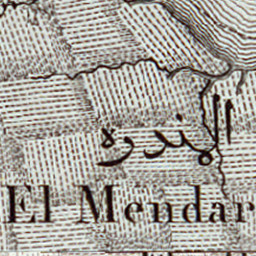 المندره
El Mendar